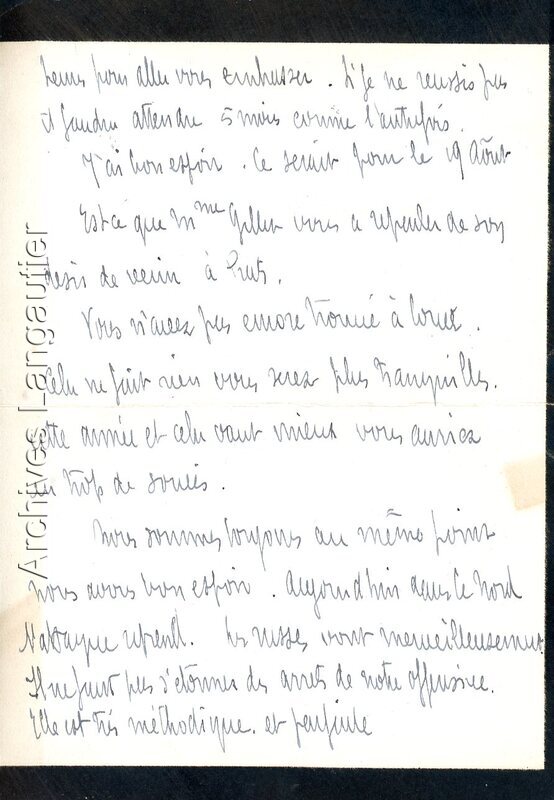 heures pour aller vous embrasser. Si je ne reussis pas
il faudra attendre 5 mois comme l'autrefois.
J'ai bon espoir. Ce serait pour le 19 Août
Est ce que Mme Gillet vous a reparler de son
desir de venir à Prats.
Vous n'avez pas encore trouvé à louer.
Cela ne fait rien vous serez plus tranquilles.
cette année et cela vaut mieux vous auriez
eu trop de soucis.
Nous sommes toujours au même point
nous avons bon espoir. Aujourd'hui dans le Nord
l'attaque reprend. Les russes vont merveilleusement
Il ne faut pas s'étonner des arrets de notre offensive.
Elle est très méthodique. et parfaite
Archives Langautier